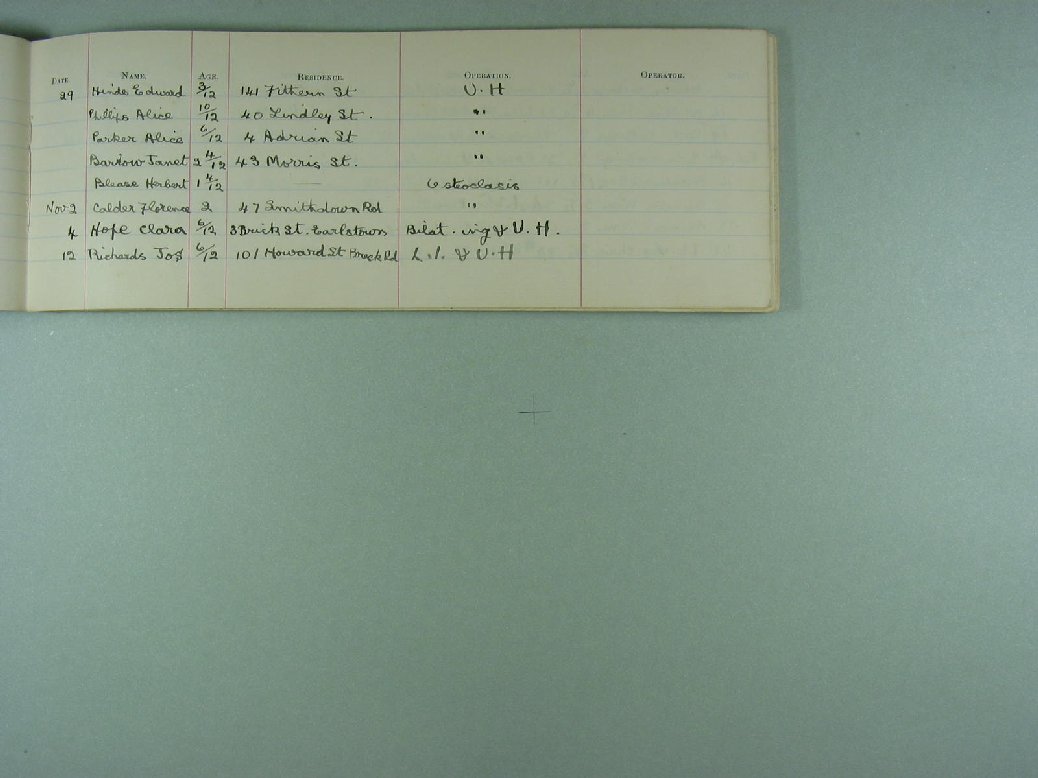 DATE. NAME. AGE. RESIDENCE. OPERATION. OPERATOR.
29 Hinde Edward 3/12 141 Fithern St U.H
Phllips Alice 10/12 40 Lindley St. "
Parker Alice 6/12 4 Adrian St "
Barlow Janet 2 4/12 43 Morris St. "
Blease Herbert 1 4/12 — Osteoclasis
Nov 2 Calder Florence 2 47 Smithdown Rd "
4 Hope Clara 6/12 3 Brick St. Earlstown Bilat. ing & U.H.
12 Richards Jos 6/12 101 Howard St Breck Rd L.I. & U.H